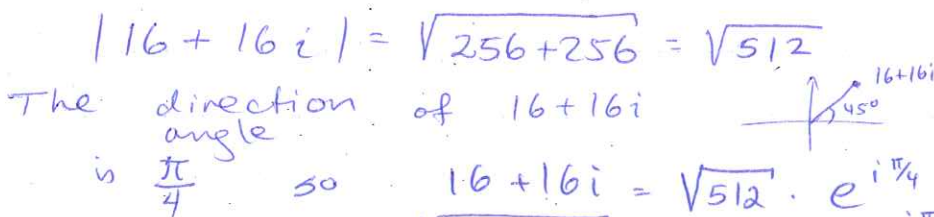 |16 + 16 i| = √256+256 = √512
The direction of 16+16i
angle
16+16i
45°
is π/4 so 16 + 16i = √512 · e^{iπ/4}